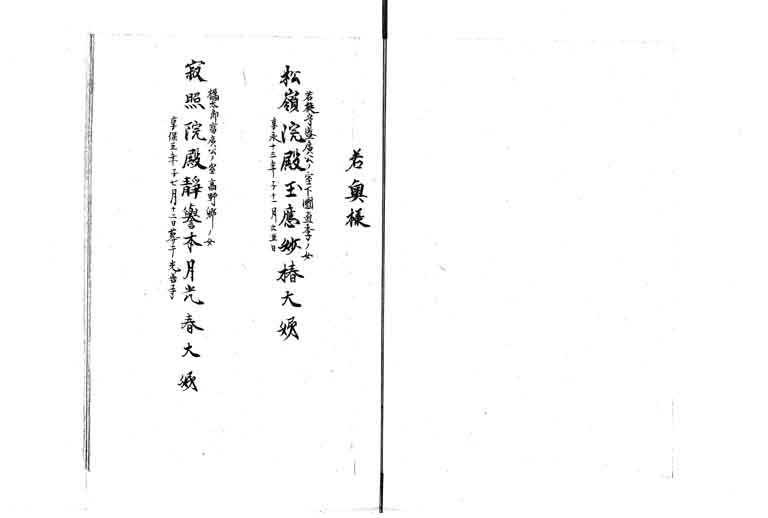 若奥様
若狭守盛廣公ノ室下國直季ノ女
松嶺院殿玉應妙椿大姉
永十三年子十一月廿五日
橘太郎富廣公ノ室高野郷ノ女
寂照院殿靜譽本月光春大姉
享保五年子七月十二日葬于光善寺